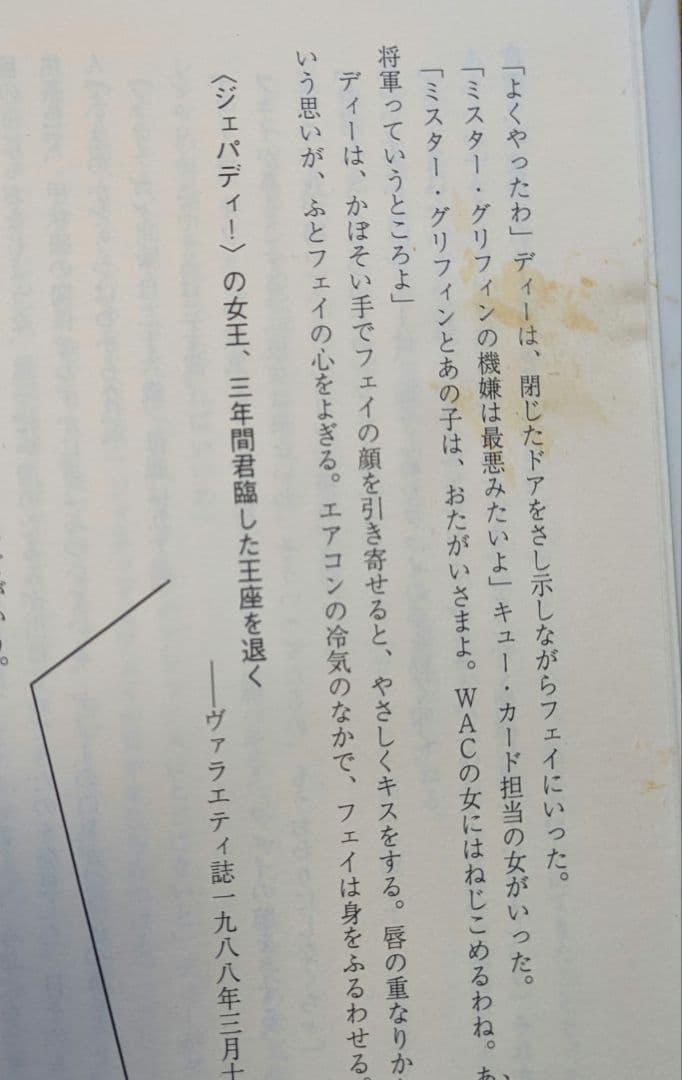 「よくやったわ」ディーは、閉じたドアをさし示しながらフェイにいった。
「ミスター・グリフィンの機嫌は最悪みたいよ」キュー・カード担当の女がいった。
「ミスター・グリフィンとあの子は、おたがいさまよ。WACの女にはねじこめるわね。あ
将軍っていうところよ」
ディーは、かぼそい手でフェイの顔を引き寄せると、やさしくキスをする。唇の重なりか
いう思いが、ふとフェイの心をよぎる。エアコンの冷気のなかで、フェイは身をふるわせる。
〈ジェパディ！〉の女王、三年間君臨した王座を退く
──ヴァラエティ誌一九八八年三月十